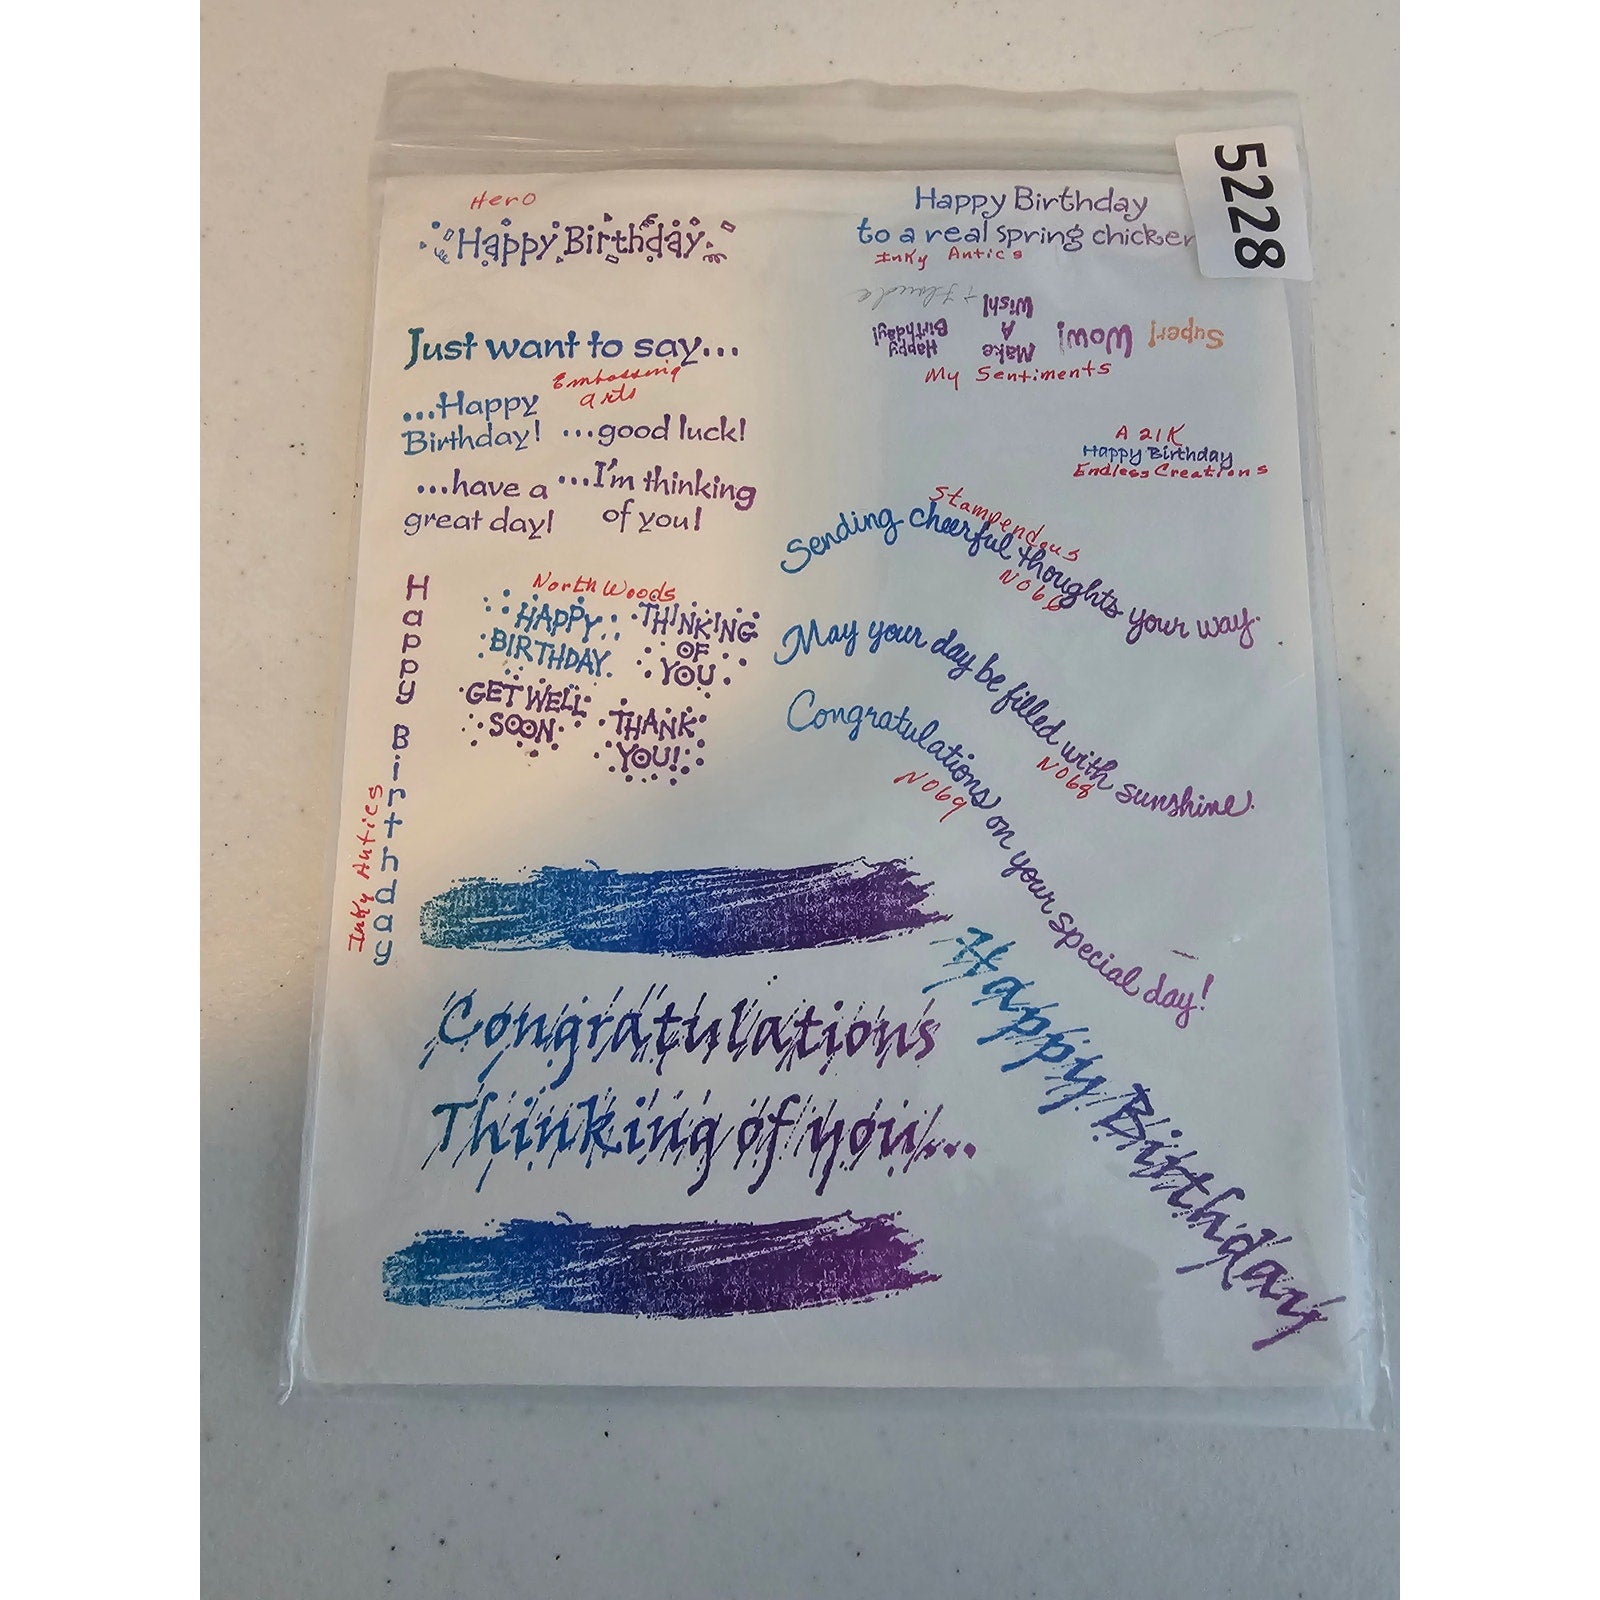 5228
Hero
Happy Birthday
Happy Birthday
to a real spring chicken
Inky Antics
Happy
Birthday!
Make
A
Wish!
Wow!
Super!
My Sentiments
Just want to say...
Embossing
arts
...Happy
Birthday!
...good luck!
...have a
great day!
...I'm thinking
of you!
A 21K
Happy Birthday
Endless Creations
Stampendous
Sending cheerful thoughts your way.
N066
May your day be filled with sunshine.
N068
Congratulations on your special day!
N069
North Woods
HAPPY
BIRTHDAY
THINKING
OF
YOU
GET WELL
SOON
THANK
YOU!
Happy Birthday
Inky Antics
Congratulations
Thinking of you...
Happy Birthday